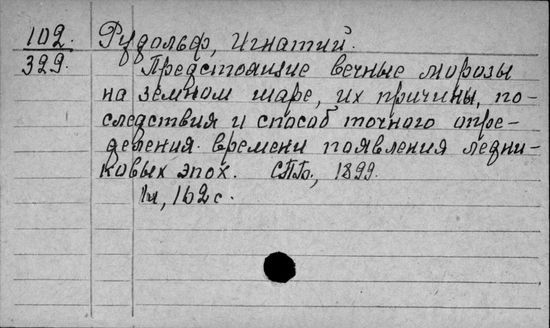 102. Рудольф, Игнатий.
329. Предстоящие вечные морозы
на земном шаре, их причины, по-
следствия и способ точного опре-
деления времени появления ледни-
ковых эпох. СПб., 1899.
162 с.